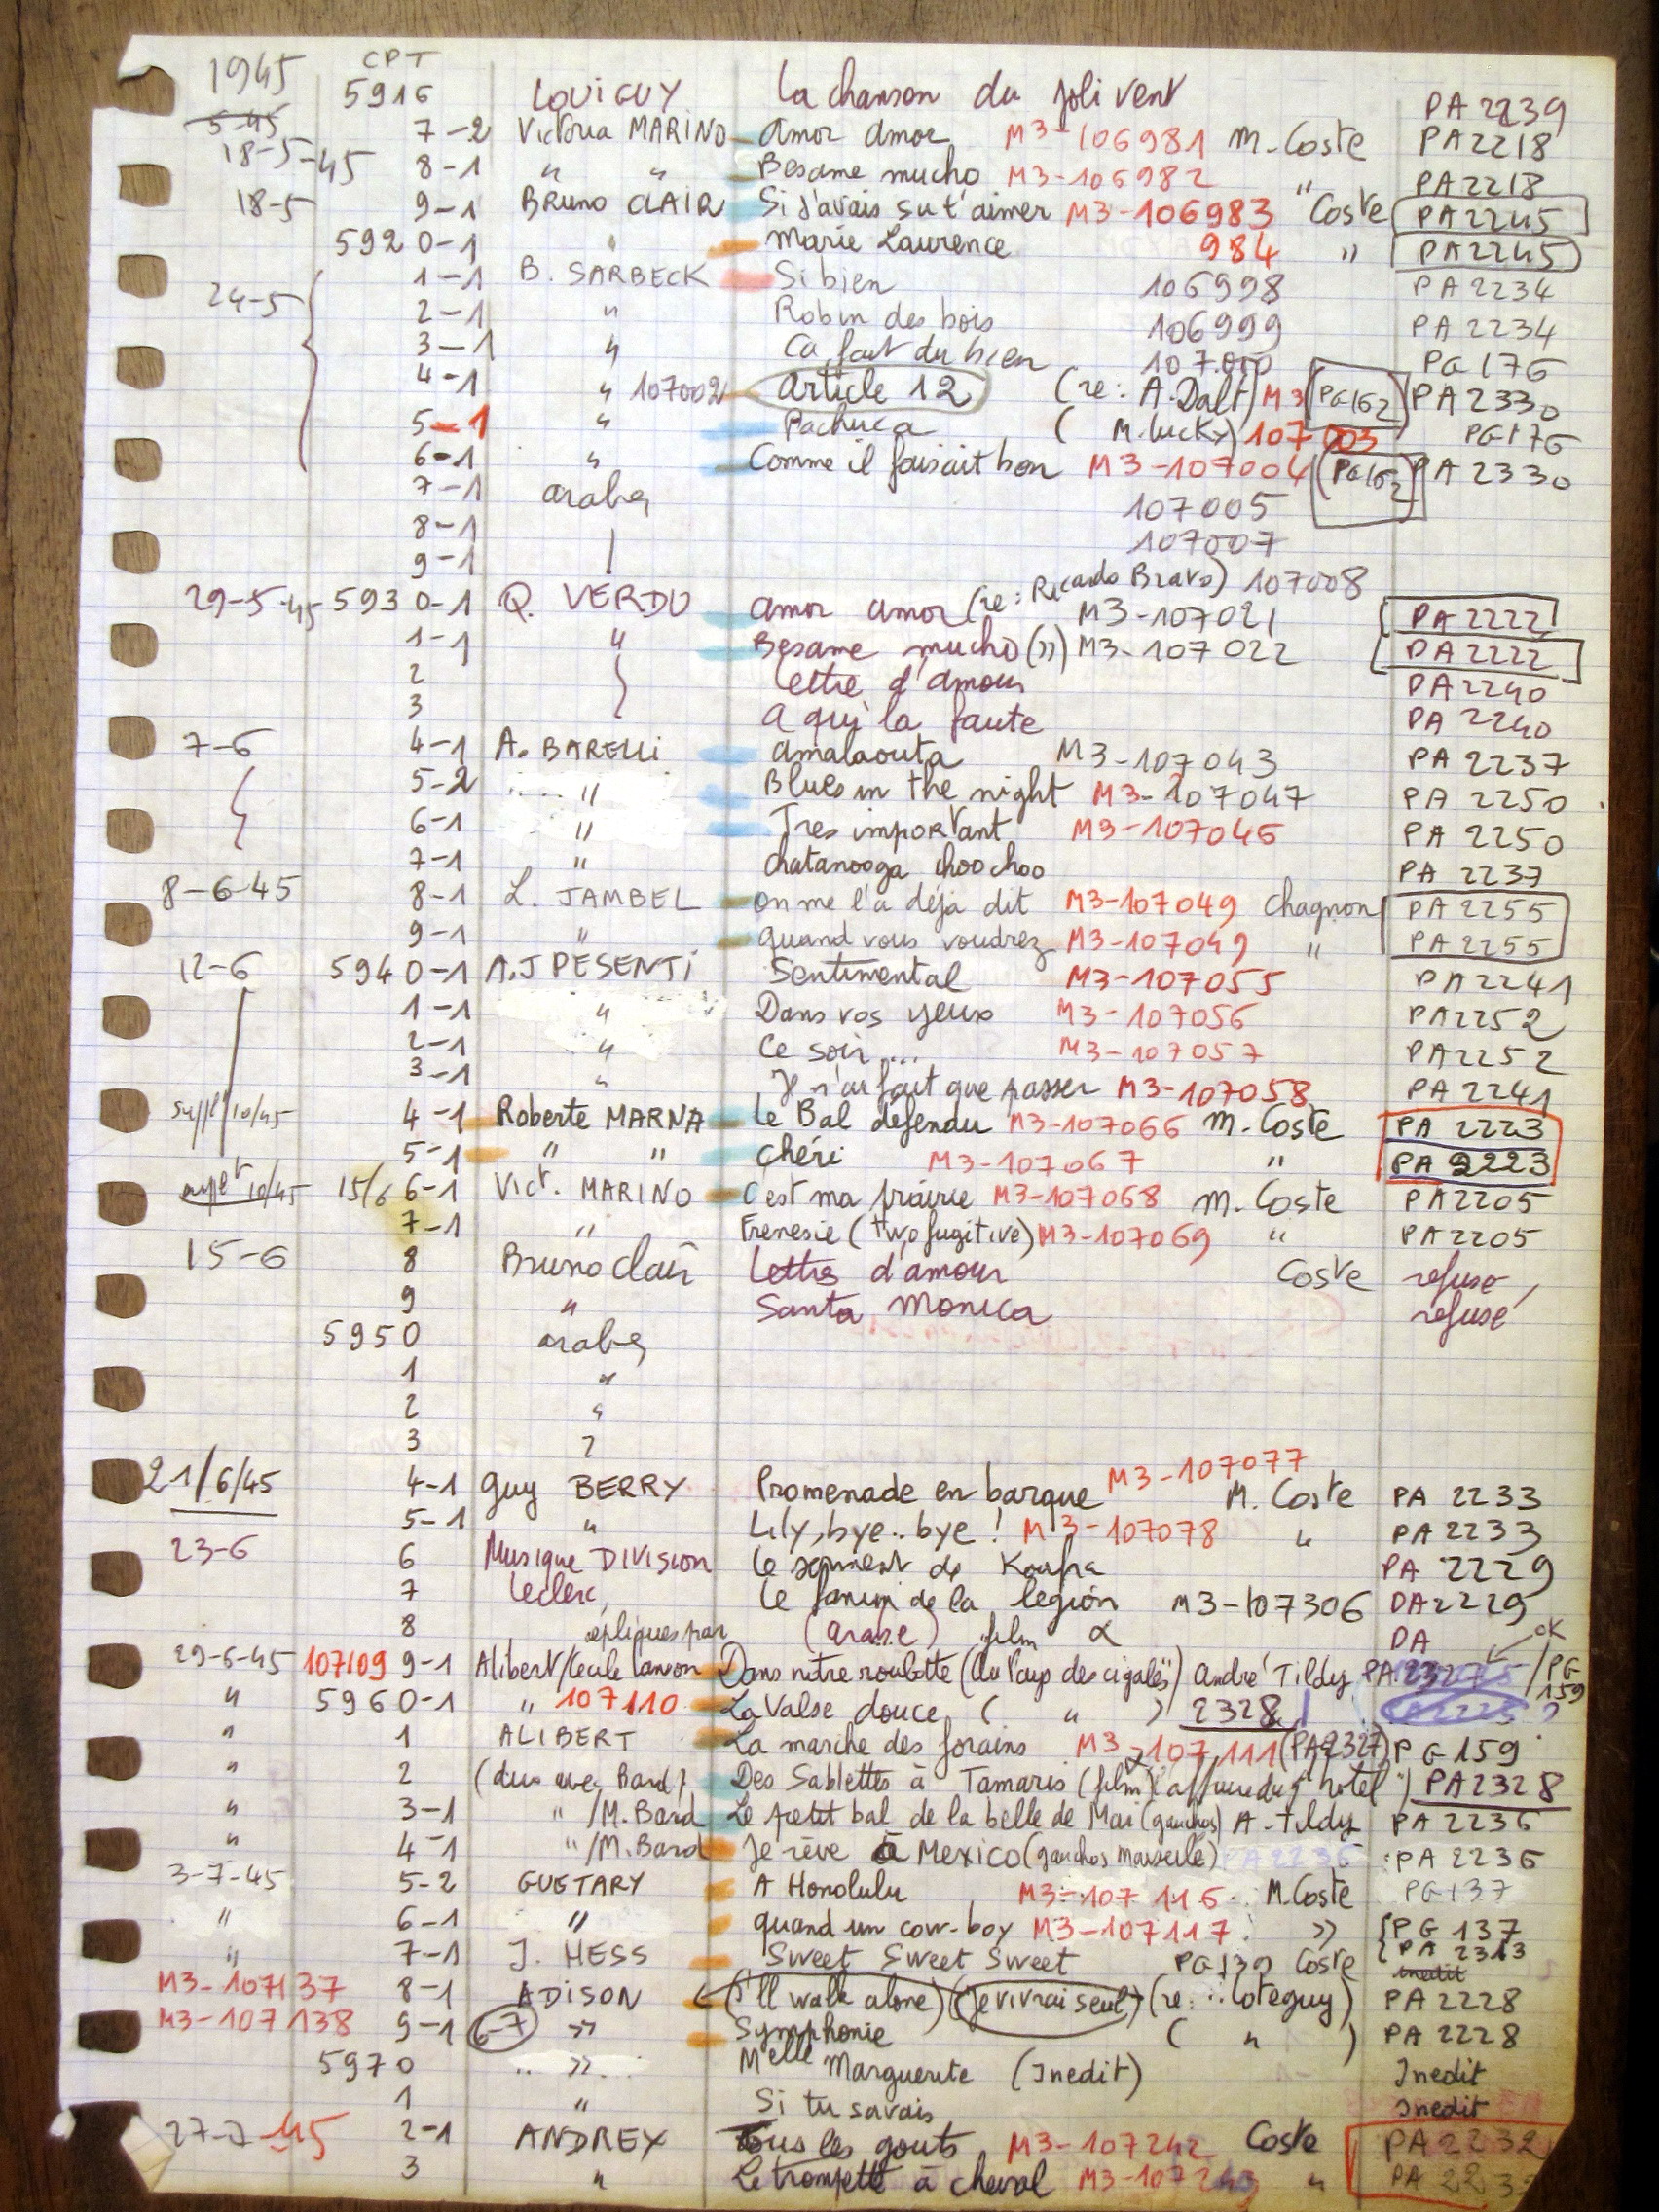 1945 CPT
5916 LOUIGUY La chanson du joli vent PA 2239
5-45 7-2 Victoria MARINO amor amor M3-106981 M. Coste PA2218
18-5-45 8-1 " " Besame mucho M3-106982 " PA2218
18-5 9-1 BRUNO CLAIR Si j'avais su t'aimer M3-106983 Coste PA2245
5920-1 " Marie Laurence 984 " PA2245
1-1 B. SARBECK Si bien 106998 PA 2234
24-5 2-1 " Robin des bois 106999 PA 2234
3-1 " Ca fait du bien 107.000 PG 176
4-1 " 107002 article 12 (re: A. Dalt) M3 PG162 PA 2330
5-1 " Pachuca ( M. lucky) 107003 PG176
6-1 " Comme il faisait bon M3-107004 PG162 PA 2330
7-1 arabes 107005
8-1 107007
9-1 | 107008
29-5-45 5930-1 Q. VERDU amor amor (re: Ricardo Bravo) M3-107021 PA 2222
1-1 " Besame mucho (") M3-107022 PA 2222
2 lettre d'amour PA2240
3 a qui la faute PA 2240
7-6 4-1 A. BARELLI amalaouta M3-107043 PA 2237
5-2 " Blues in the night M3-107047 PA 2250
6-1 " Tres important M3-107046 PA 2250
7-1 " chatanooga choo choo PA 2237
8-6-45 8-1 L. JAMBEL on me l'a déja dit M3-107049 Chagnon PA 2255
9-1 " quand vous voudrez M3-107049 " PA 2255
12-6 5940-1 A.J PESENTI Sentimental M3-107055 PA2241
1-1 " Dans vos yeux M3-107056 PA2252
2-1 " Ce soir... M3-107057 PA2252
3-1 " Je n'ai fait que passer M3-107058 PA 2241
suppl 10/45 4-1 Roberte MARNA le Bal défendu M3-107066 M. Coste PA 2223
5-1 " " chéri M3-107067 " PA 2223
supplt 10/45 15/6 6-1 Vict. MARINO C'est ma prairie M3-107068 M. Coste PA2205
7-1 " Frenesie (two fugitive) M3-107069 " PA2205
15-6 8 Bruno Clair Lettre d'amour Coste refusé
9 " Santa Monica refusé
5950 arabes
1 "
2 "
3 ?
21/6/45 4-1 Guy BERRY Promenade en barque M3-107077 M. Coste PA 2233
5-1 " Lily, bye..bye! M3-107078 " PA 2233
23-6 6 Musique DIVISION Le serment de Koufra PA 2229
7 Leclerc, Le fanion de la légion M3-107306 DA2229
8 répliques par (arabe) film DA OK
29-6-45 107109 9-1 Alibert/Cecile Lanson Dans notre roulotte (au coup des cigales) André Tildy PA 2327 /PG 159
" 5960-1 " 107110 La Valse douce ( " ) 2328
" 1 ALIBERT La marche des forains M3-107111 (PA2327) PG 159
" 2 (duo avec Bard?) Des Sablettes à Tamaris (film) l'affaire du " hotel") PA2328
" 3-1 " /M. Bard Le petit bal de la belle de Mai (gauchos) A-tildy PA 2236
" 4-1 " /M. Bard Je rêve à Mexico (gauchos marseille) PA 2236
3-7-45 5-2 GUETARY A Honolulu M3-107116 M. Coste PG137
" 6-1 " quand un cow-boy M3-107117 " PG 137
" 7-1 J. HESS Sweet Sweet Sweet PG139 Coste PA 2313 inedit
M3-107137 8-1 ADISON (I'll walk alone) (je vivrai seul) (re: Loteguy) PA 2228
M3-107138 9-1 6-7 " Symphonie ( " ) PA 2228
5970 " Melle Marguerite (Inedit) Inedit
1 " Si tu savais Inedit
27-7-45 2-1 ANDREX Tous les gouts M3-107242 Coste PA 2232
3 " Le trompette à cheval M3-107243 " PA 223